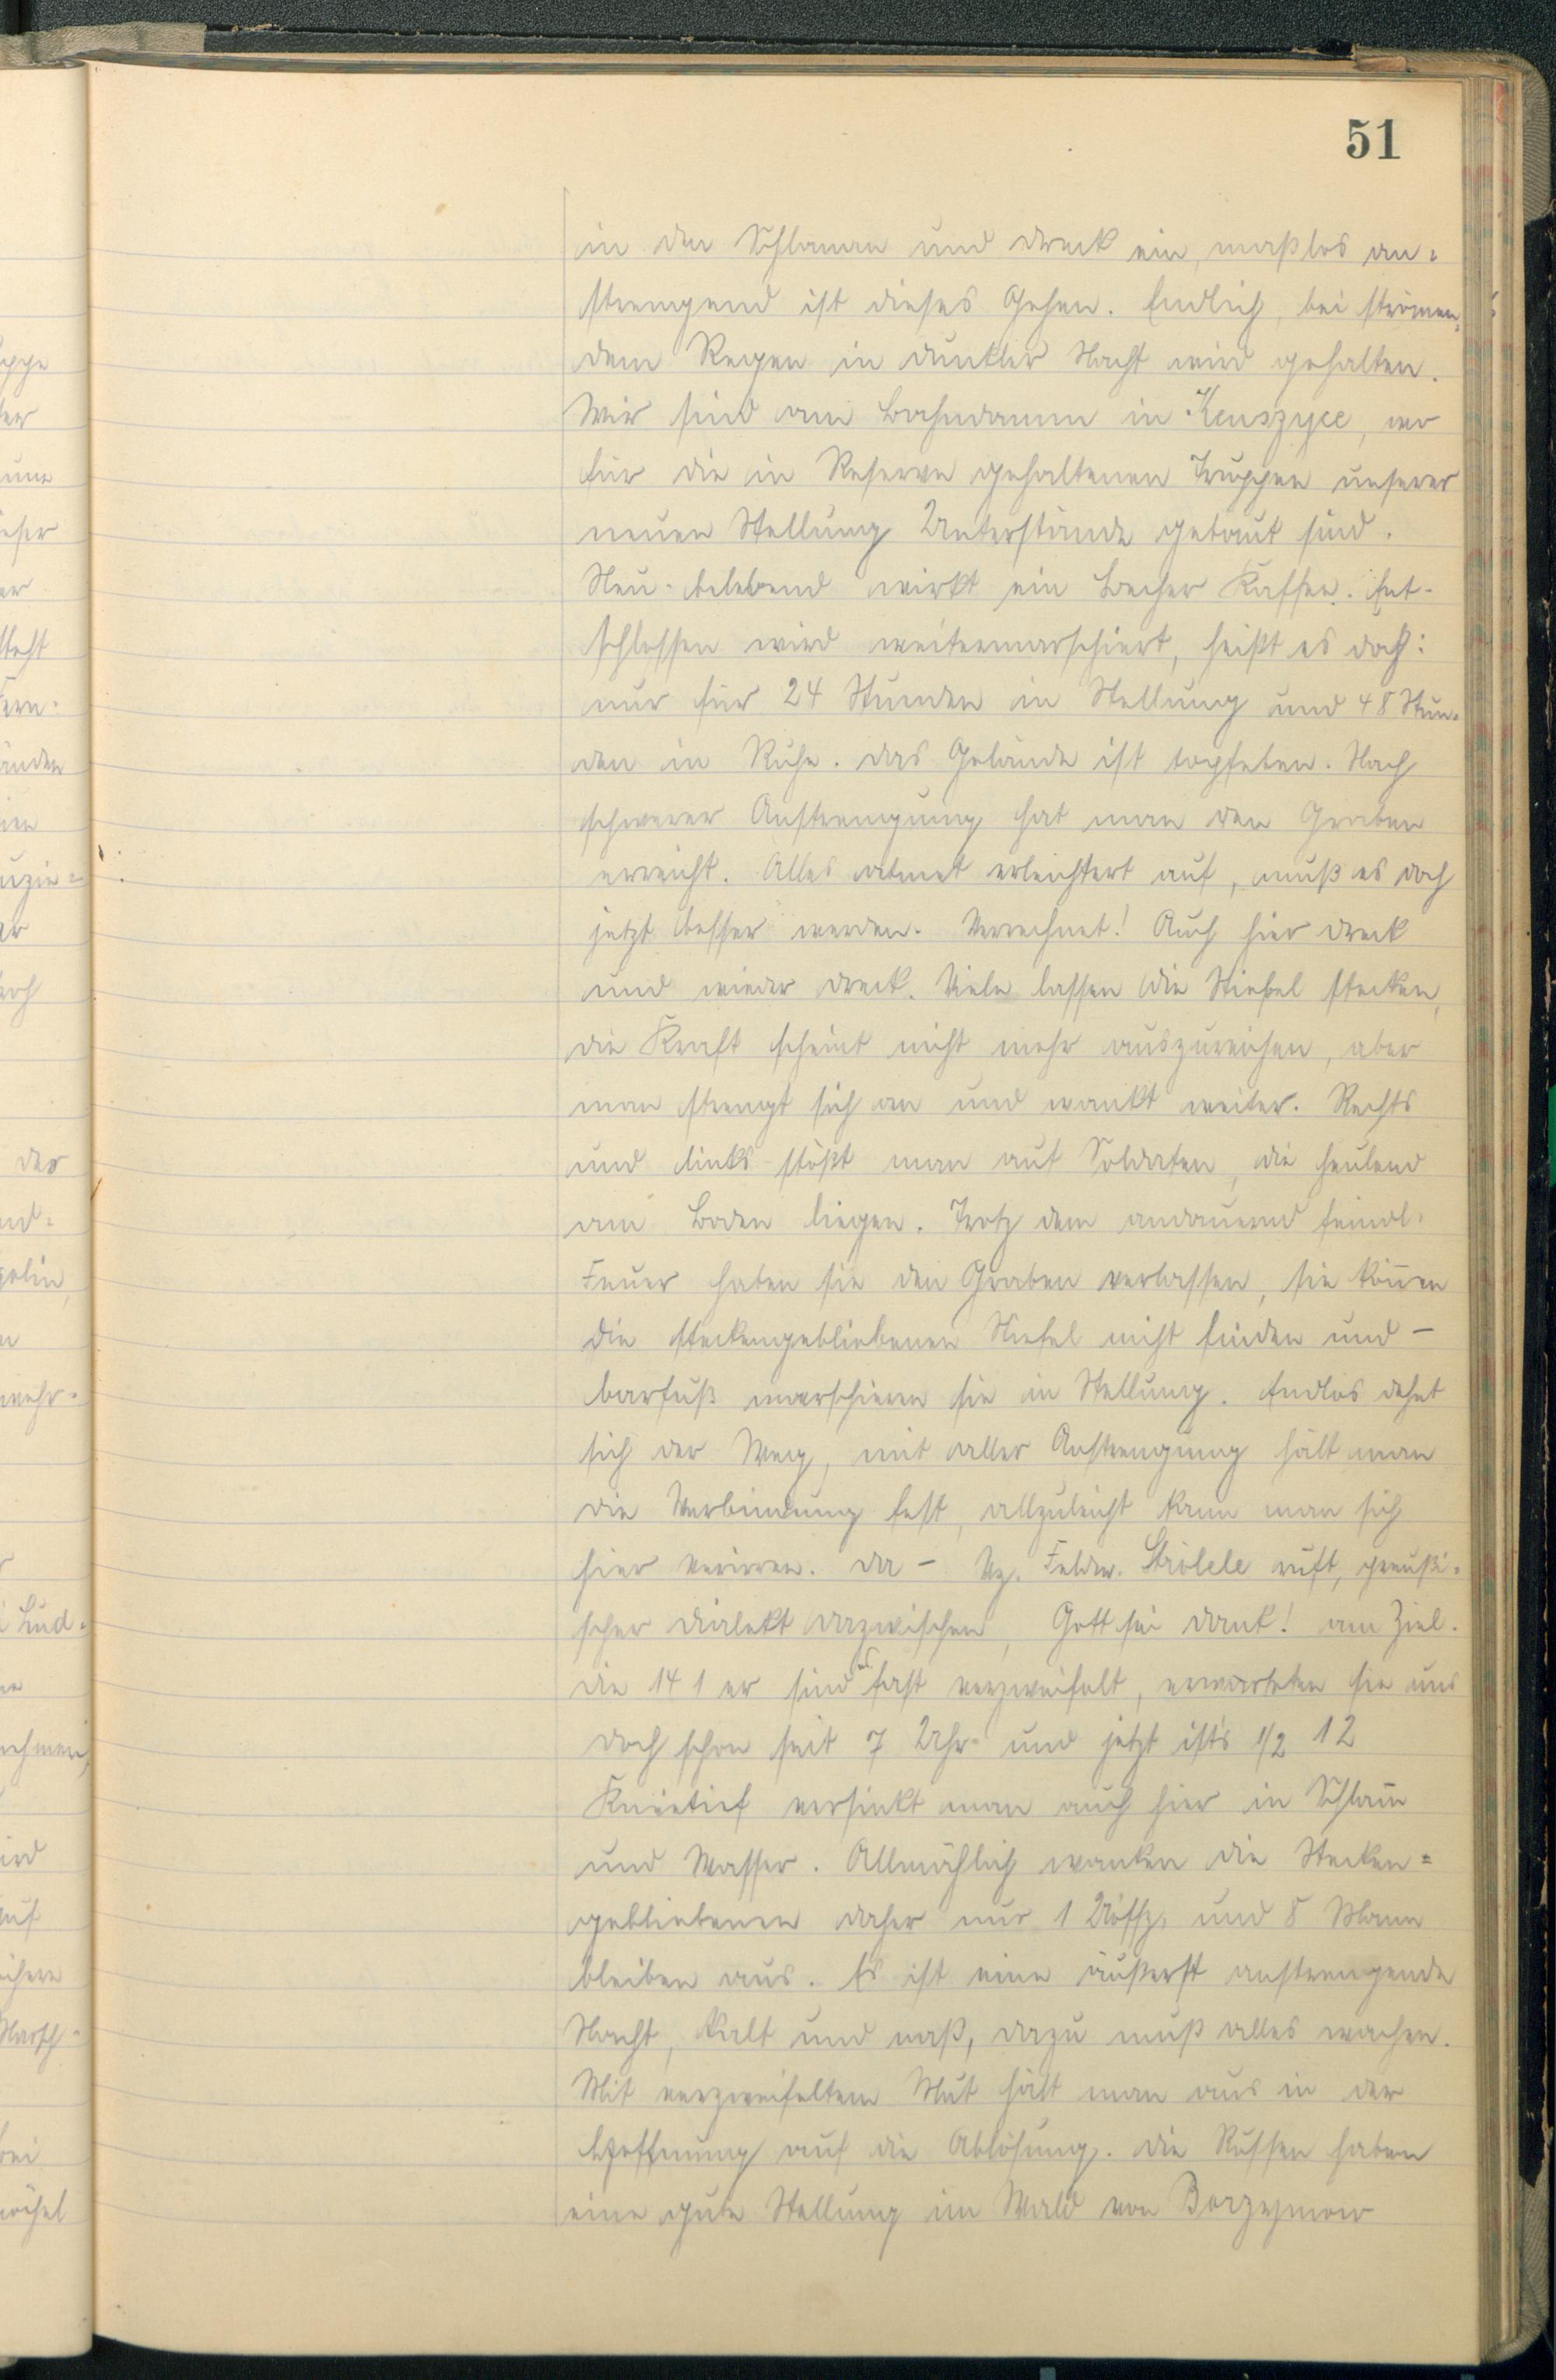 51
in den Schlamm und Dreck ein, maßlos an-
strengend ist dieses Gehen. Endlich, bei strömen-
dem Regen in dunkler Nacht wird gehalten.
Wir sind am Bahndamm in Kenszyce, wo
für die in Reserve gehaltenen Truppen unserer
neuen Stellung Unterstände gebaut sind.
Neu-belebend wirkt ein Becher Kaffee. Ent-
schlossen wird weitermarschiert, heißt es doch:
nur für 24 Stunden in Stellung und 48 Stun-
den in Ruhe. Das Gelände ist topfeben. Nach
schwerer Anstrengung hat man den Graben
erreicht. Alles atmet erleichtert auf, muß es doch
jetzt besser werden. Verrechnet! Auch hier Dreck
und wieder Dreck. Viele lassen die Stiefel stecken,
die Kraft scheint nicht mehr auszureichen, aber
man strengt sich an und wankt weiter. Rechts
und links stößt man auf Soldaten, die heulend
am Boden liegen. Trotz dem andauernd feindl.
Feuer haben sie den Graben verlassen, sie können
die steckengebliebenen Stiefel nicht finden und -
barfuß marschieren sie in Stellung. Endlos dehnt
sich der Weg, mit aller Anstrengung hält man
die Verbindung fest, allzuleicht kann man sich
hier verirren. Da - Vz. Feldw. Strölele ruft, preußi-
scher Dialekt dazwischen, Gott sei Dank! am Ziel.
Die 141 er sind fast verzweifelt, erwarteten sie uns
doch schon seit 7 Uhr und jetzt ist's 1/2 12
Knietief versinkt man auch hier in Schlamm
und Wasser. Allmählich wanken die Stecken-
gebliebenen daher nur 1 Uoffz. und 8 Mann
bleiben aus. Es ist eine äußerst anstrengende
Nacht, kalt und naß, dazu muß alles wachen.
Mit verzweifeltem Mut hält man aus in der
Hoffnung auf die Ablösung. Die Russen haben
eine gute Stellung im Wald von Borzymow